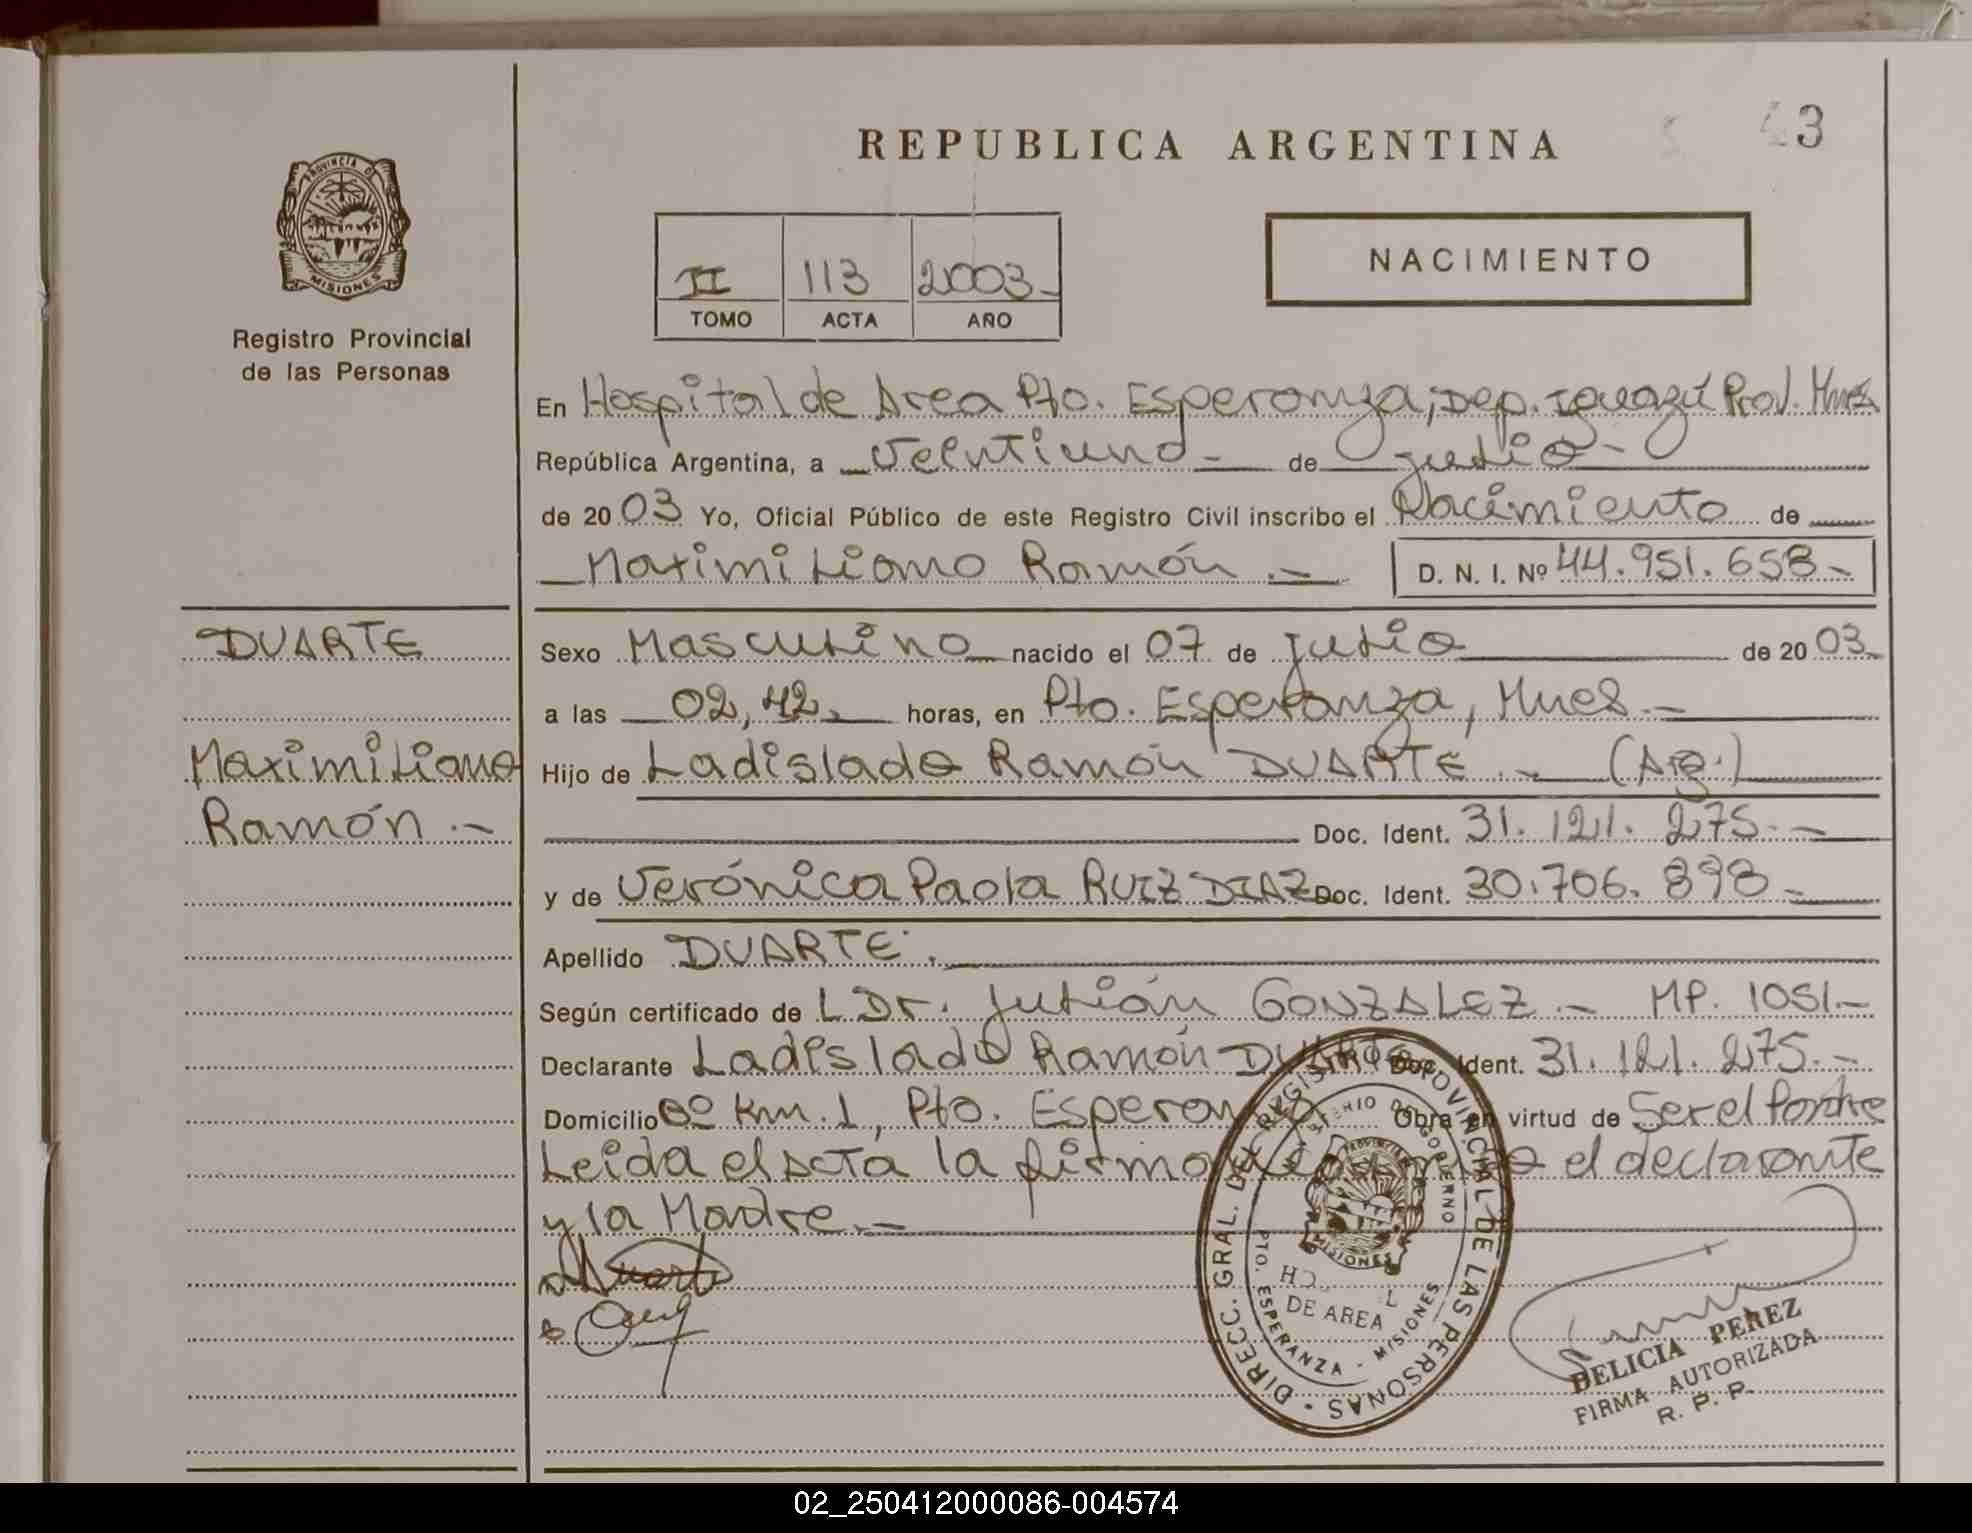 43
REPUBLICA ARGENTINA
PROVINCIA DE
MISIONES
Registro Provincial
de las Personas
II 113 2003-
TOMO ACTA AÑO
NACIMIENTO
En Hospital de Area Pto. Esperanza, Dep. Iguazú Prov. Mnes
República Argentina, a Veintiuno - de julio -
de 2003 Yo, Oficial Público de este Registro Civil inscribo el Nacimiento de
Maximiliano Ramón .- D. N. I. Nº 44.951.658-
DUARTE
Maximiliano
Ramón .-
Sexo Masculino nacido el 07 de julio de 2003-
a las 02,42, horas, en Pto. Esperanza, Mnes.-
Hijo de Ladislado Ramón DUARTE .- (Arg.)
Doc. Ident. 31.121.275.-
y de Verónica Paola RUIZ DIAZ Doc. Ident. 30.706.898-
Apellido DUARTE.
Según certificado de L Dr. Julián GONZALEZ .- MP. 1051.-
Declarante Ladislado Ramón DUARTE Doc. Ident. 31.121.275.-
Domicilio Bº Km. 1, Pto. Esperanza Obra en virtud de Ser el Padre
Leida el Acta la firma el declarante
y la Madre.-
Duarte
DIRECC. GRAL. DEL REGISTRO PROVINCIAL DE LAS PERSONAS
MINISTERIO DE GOBIERNO
PROVINCIA
MISIONES
HOSPITAL
DE AREA
PTO. ESPERANZA - MISIONES
DELICIA PEREZ
FIRMA AUTORIZADA
R. P. P.
02_250412000086-004574